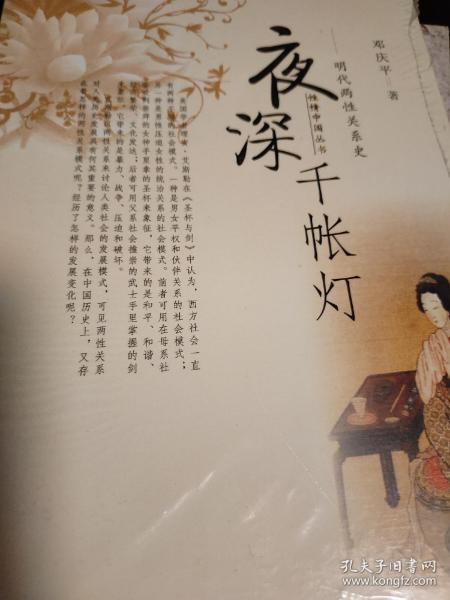 邓庆平 著
明代两性关系史
性情中国丛书
夜深
千帐灯
《圣杯与剑》中认为，西方社会一直
有两种
的社会模式。一种是男女平权和伙伴关系的社会模式；
一种是男性压迫女性的统治关系的社会模式。前者可用在母系社
女神手里拿的圣杯来象征，它带来的是和平、和谐、
文化发达；后者可用父系社会推崇的武士手里掌握的剑
它带来的是暴力、战争、压迫和破坏。
两性关系来讨论人类社会的发展模式，可见两性关系
发展具有何其重要的意义。那么，在中国历史上，又存
怎样的两性发展模式呢？经历了怎样的发展变化呢？
孔夫子旧书网
www.kongfz.com